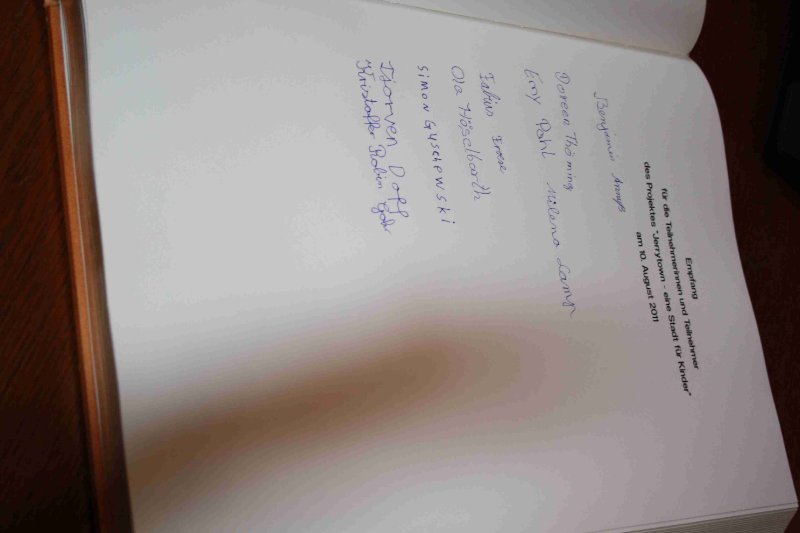 Empfang
für die Teilnehmerinnen und Teilnehmer
des Projektes "Jerrytown - eine Stadt für Kinder"
am 10. August 2011
Benjamin
Doreen Thöming
Emy Pahl Milena Lamp
Fabius
Ole Häselbarth
SIMON GUSCHEWSKI
Thorven Dopp
Kristoffer Robin